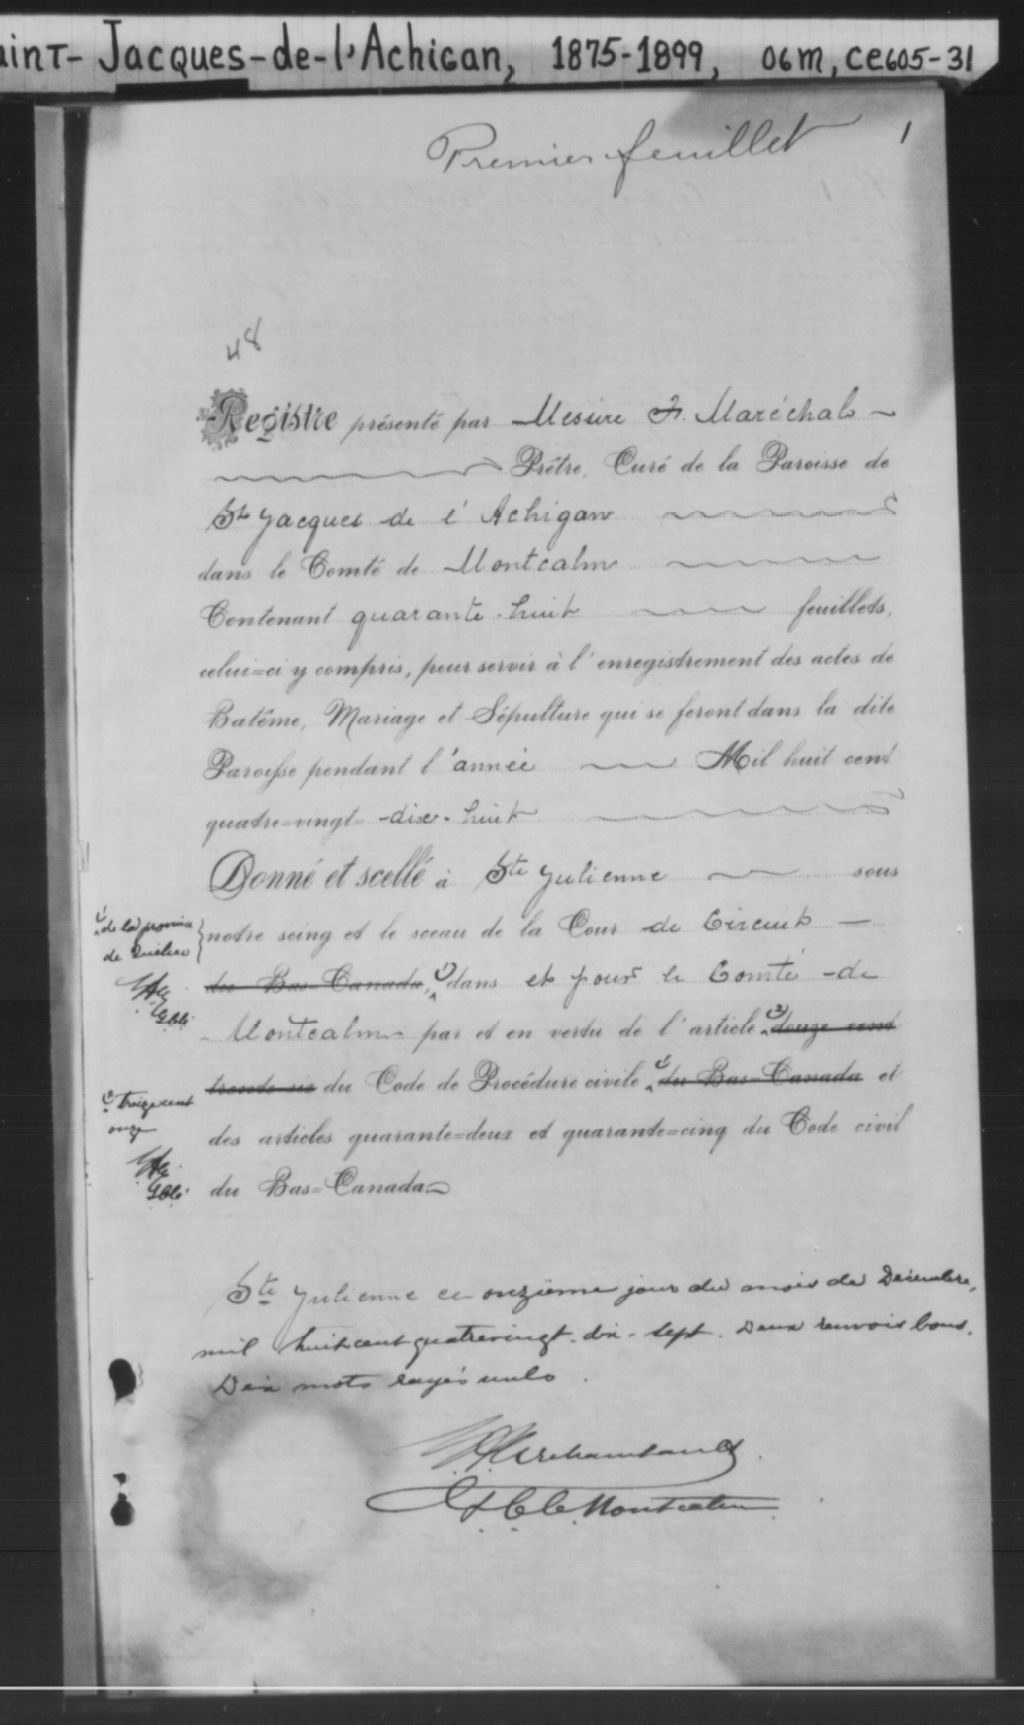 aint-Jacques-de-l'Achigan, 1875-1899, 06M, CE605-31
Premier feuillet
1
48
Registre présenté par Messire F. Maréchal
Prêtre, Curé de la Paroisse de
St Jacques de l'Achigan
dans le Comté de Montcalm
Contenant quarante-huit feuillets,
celui=ci y compris, pour servir à l'enregistrement des actes de
Batême, Mariage et Sépulture qui se feront dans la dite
Paroisse pendant l'année Mil huit cent
quatre=vingt=-dix-huit
Donné et scellé à Ste Julienne sous
notre seing et le sceau de la Cour de Circuit
du Bas=Canada, dans et pour le Comté de
Montcalm par et en vertu de l'article douze cent
trente-six du Code de Procédure civile du Bas=Canada et
des articles quarante=deux et quarante=cinq du Code civil
du Bas=Canada
de la province
de Québec
treize cent
onze
Ste Julienne ce onzième jour du mois de Décembre,
mil huit cent quatrevingt-dix-sept. Deux renvois bons.
Dix mots rayés nuls.
Archambault
G.C.C. Montcalm